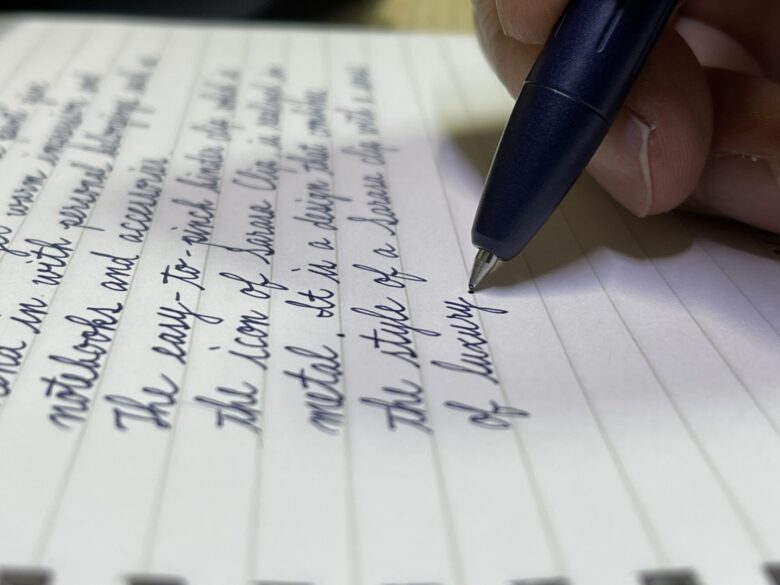 worn
and in with personal belongings such as
notebooks and accessories
The easy-to-pinch binder clip which is
the icon of Sarasa Clip is realized in
metal. It is a design that combines
the style of a Sarasa clip with a sense
of luxury